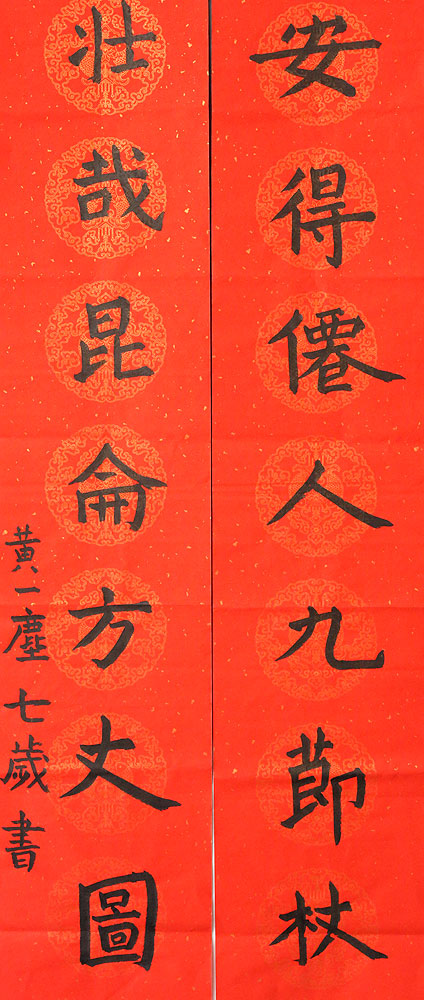 安得僊人九茆杖
壯哉昆侖方丈圖
黃一塵七歲書